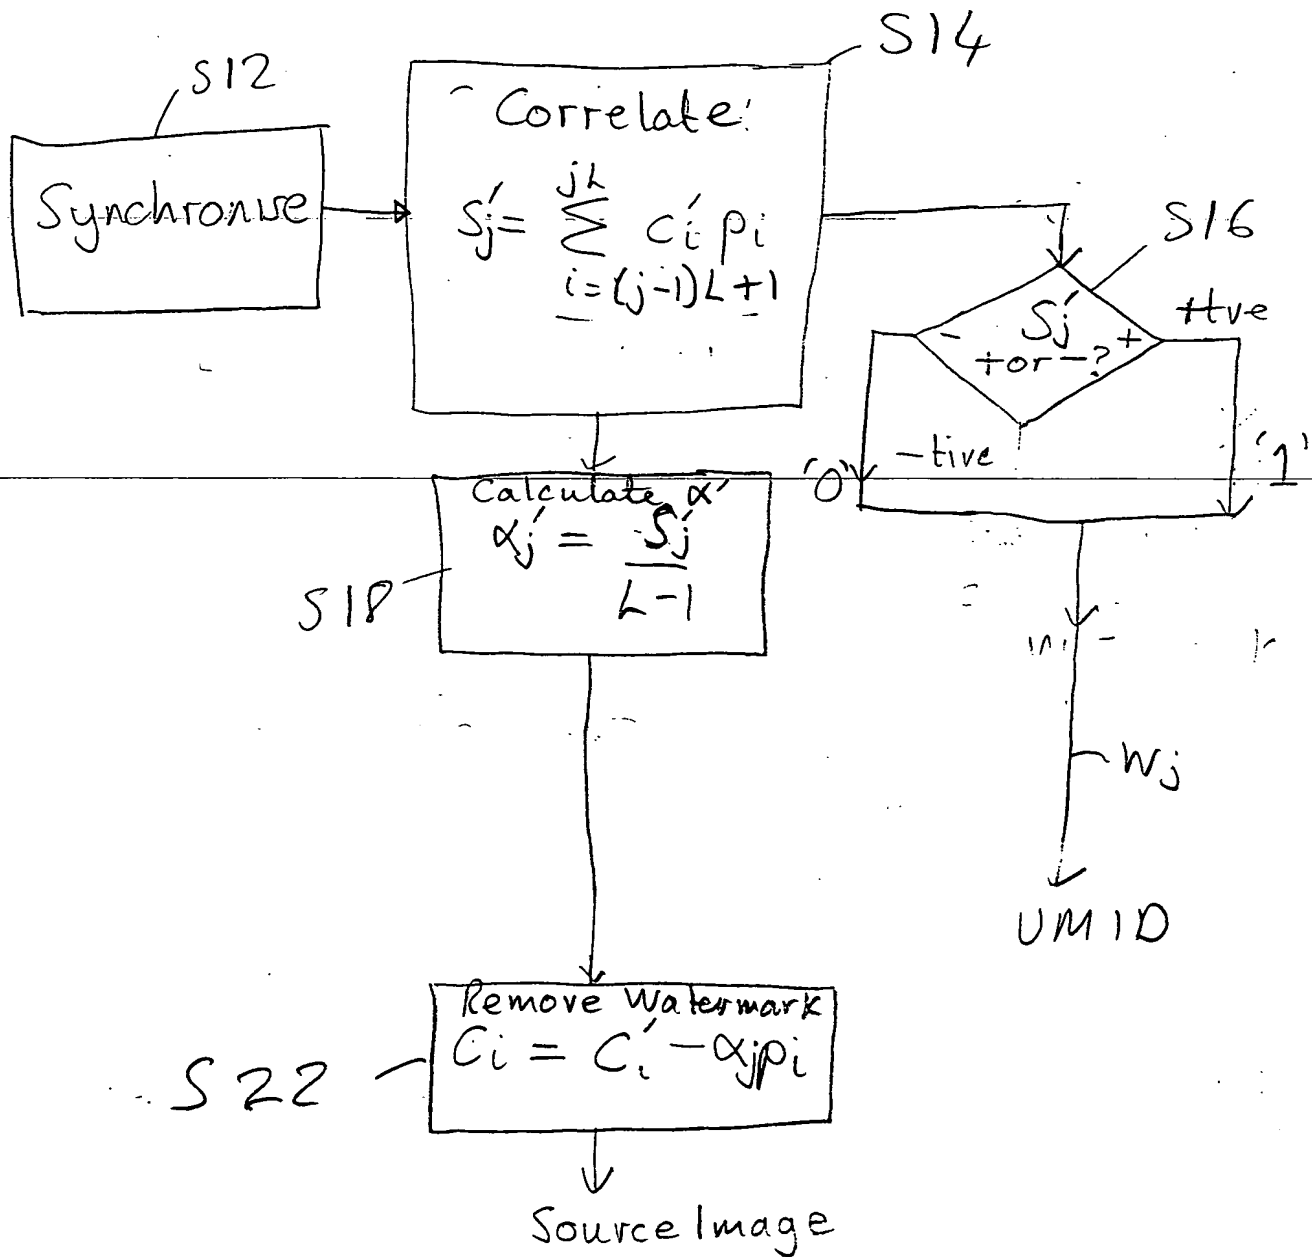 S12
Synchronise
S14
Correlate:
Sj' = jL
∑ ci' pi
i=(j-1)L+1
S16
Sj'
- + or -? +
+tve
-tive
'0'
'1'
Calculate α'
αj' = Sj'
L-1
S18
Wj
UMID
Remove Watermark
Ci = Ci' - αjpi
S22
Source Image